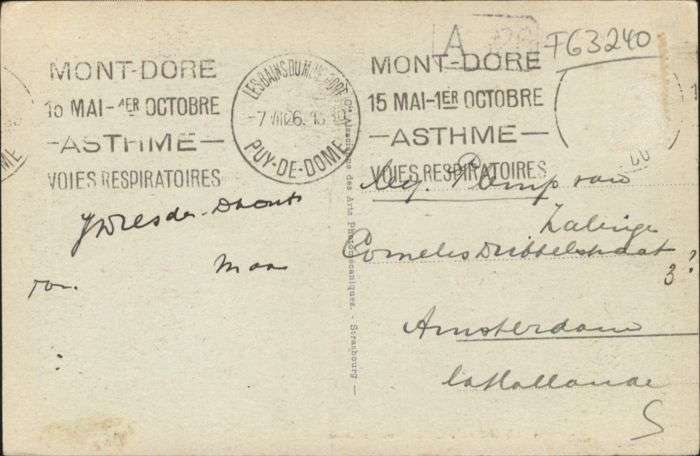 A
F63240
MONT-DORE
15 MAI-1ER OCTOBRE
-ASTHME-
VOIES RESPIRATOIRES
LES BAINS DU MONT-DORE
-7 VIII 26
PUY-DE-DOME
MONT-DORE
15 MAI-1ER OCTOBRE
-ASTHME-
VOIES RESPIRATOIRES
Cie Alsacienne des Arts Photomécaniques. - Strasbourg -
van
Cornelis
3
Amsterdam
la Hollande
S